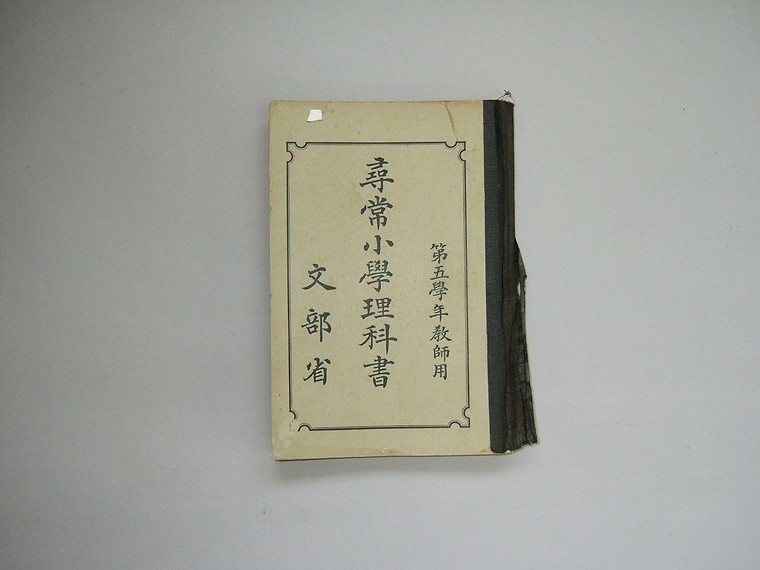 第五學年敎師用
尋常小學理科書
文部省